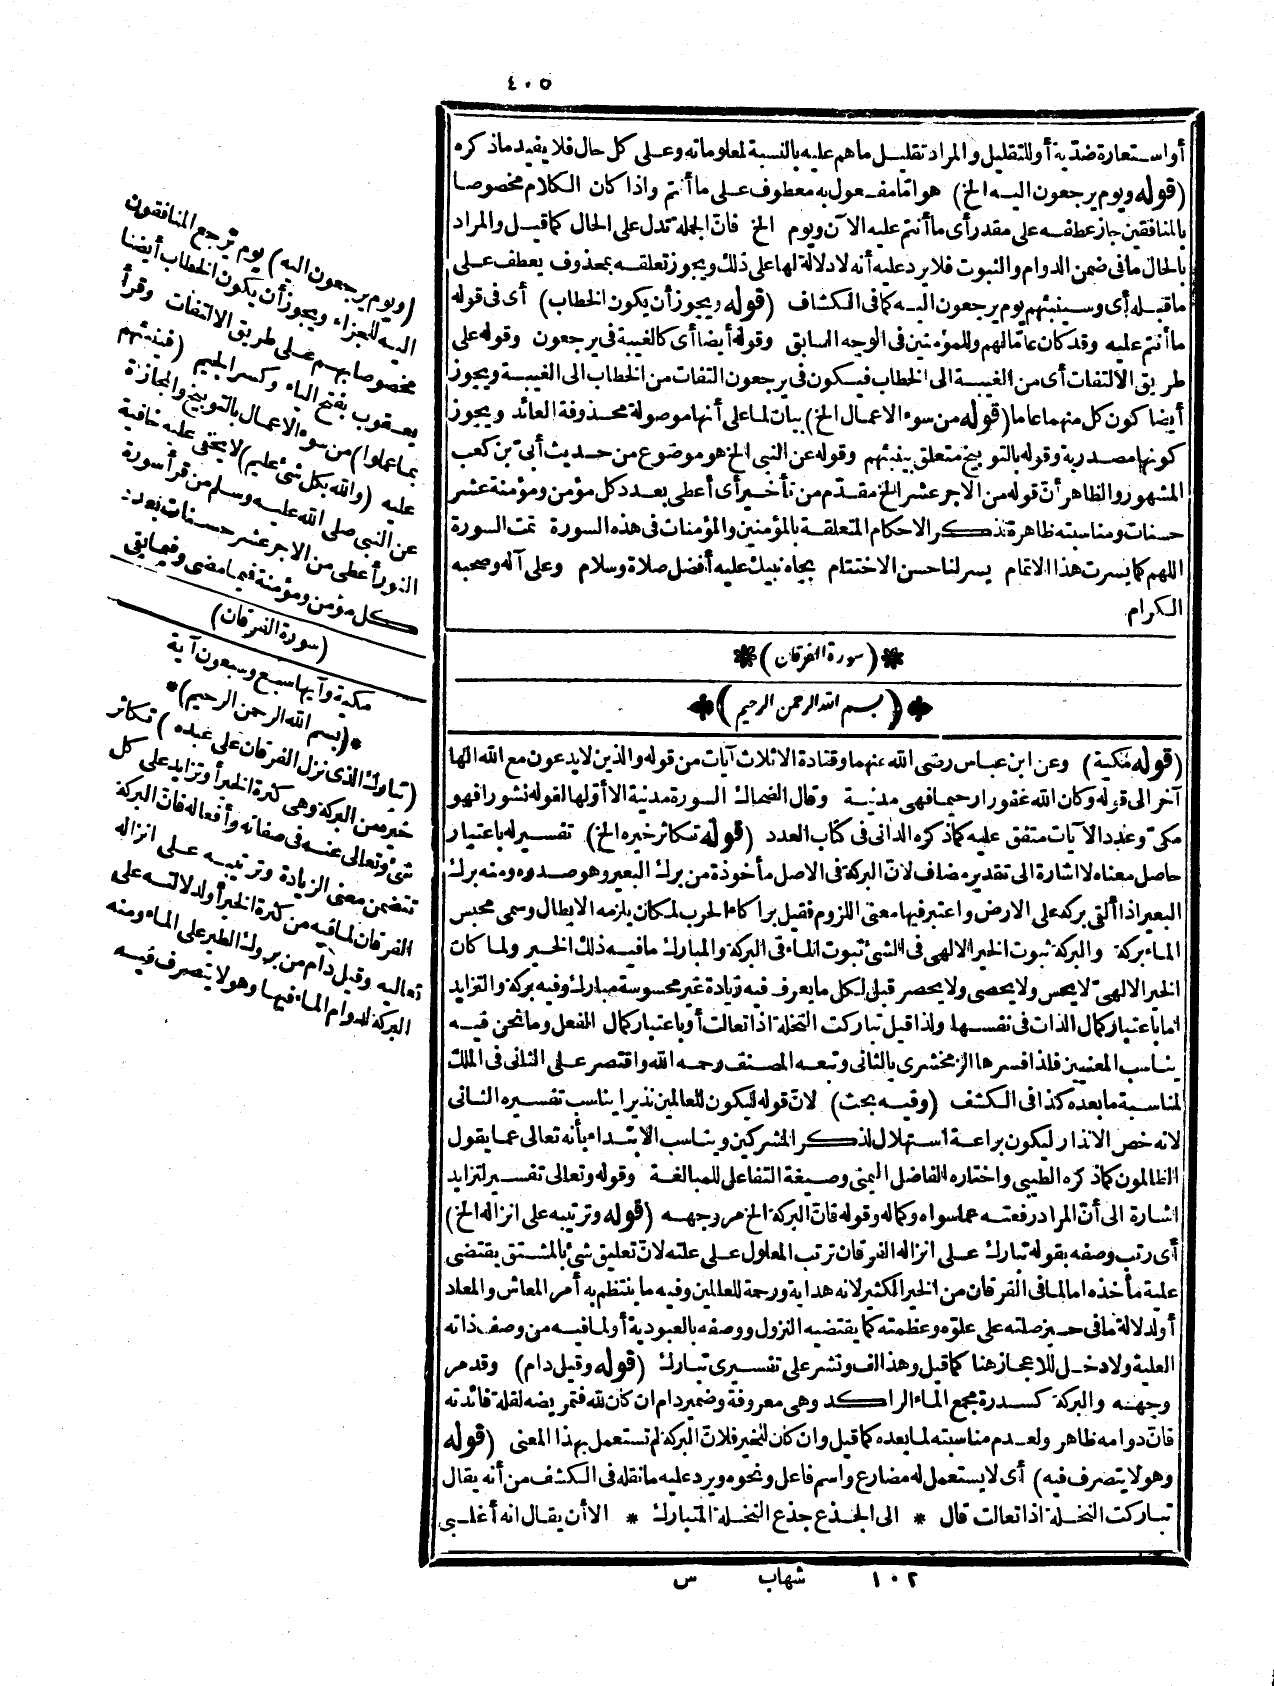 ٤٠٥
أو استعارة ضدّية أو للتقليل والمراد تقليل ما هم عليه بالنسبة لمعلوماته وعلى كل حال فلا يفيد ما ذكره
(قوله ويوم يرجعون اليه الخ) هو امّا مفعول به معطوف على ما أنتم واذا كان الكلام مخصوصا
بالمنافقين جاز عطفه على مقدر أى ما أنتم عليه الآن ويوم الخ فانّ الجملة تدل على الحال كما قيل والمراد
بالحال ما فى ضمن الدوام والثبوت فلا يرد عليه أنه لا دلالة لها على ذلك ويجوز تعلقه بمحذوف يعطف على
ما قبله أى وسينبئهم يوم يرجعون اليه كما فى الكشاف (قوله ويجوز أن يكون الخطاب) أى فى قوله
ما أنتم عليه وقد كان عامّا لهم وللمؤمنين فى الوجه السابق وقوله أيضا أى كالغيبة فى يرجعون وقوله على
طريق الالتفات أى من الغيبة الى الخطاب فيكون فى يرجعون التفات من الخطاب الى الغيبة ويجوز
أيضا كون كل منهما عاما (قوله من سوء الاعمال الخ) بيان لما على أنها موصولة محذوفة العائد ويجوز
كونها مصدرية وقوله بالتوبيخ متعلق بينبئهم وقوله عن النبى الخ هو موضوع من حديث أبىّ بن كعب
المشهور والظاهر أنّ قوله من الاجر عشر الخ مقدّم من تأخير أى أعطى بعدد كل مؤمن ومؤمنة عشر
حسنات ومناسبته ظاهرة لذكر الاحكام المتعلقة بالمؤمنين والمؤمنات فى هذه السورة تمت السورة
اللهم كما يسرت هذا الاتمام يسر لنا حسن الاختتام بجاه نبيك عليه أفضل صلاة وسلام وعلى آله وصحبه
الكرام
(سورة الفرقان)
(بسم الله الرحمن الرحيم)
(قوله مكية) وعن ابن عباس رضى الله عنهما وقتادة الا ثلاث آيات من قوله والذين لا يدعون مع الله الها
آخر الى قوله وكان الله غفورا رحيما فهى مدنية وقال الضحاك السورة مدنية الا أولها لقوله نشورا فهو
مكىّ وعدد الآيات متفق عليه كما ذكره الدانى فى كتاب العدد (قوله تكاثر خيره الخ) تفسير له باعتبار
حاصل معناه لا اشارة الى تقدير مضاف لانّ البركة فى الاصل مأخوذة من برك البعير وهو صدره ومنه برك
البعير اذا ألقى بركه على الارض واعتبر فيها معنى اللزوم فقيل براكاء الحرب لمكان يلزمه الابطال وسمى محبس
الماء بركة والبركة ثبوت الخير الالهى فى الشئ ثبوت الماء فى البركة والمبارك ما فيه ذلك الخير ولما كان
الخير الالهىّ لا يحس ولا يحصى ولا يحصر قيل لكل ما يعرف فيه زيادة غير محسوسة مبارك وفيه بركة والتزايد
اما باعتبار كمال الذات فى نفسها ولذا قيل تباركت النخلة اذا تعالت أو باعتبار كمال الفعل وما نحن فيه
يناسب المعنيين فلذا فسرها الزمخشرى بالثانى وتبعه المصنف رحمه الله واقتصر على الثانى فى الملك
لمناسبة ما بعده كذا فى الكشف (وفيه بحث) لانّ قوله ليكون للعالمين نذيرا يناسب تفسيره الثانى
لانه خص الانذار ليكون براعة استهلال لذكر المشركين ويناسب الابتداء بأنه تعالى عما يقول
الظالمون كما ذكره الطيبى واختاره الفاضل اليمنى وصيغة التفاعل للمبالغة وقوله وتعالى تفسير لتزايد
اشارة الى أنّ المراد رفعته عما سواه وكماله وقوله فانّ البركة الخ مر وجهه (قوله وترتيبه على انزاله الخ)
أى رتب وصفه بقوله تبارك على انزاله الفرقان ترتب المعلول على علته لانّ تعليق شئ بالمشتق يقتضى
علية مأخذه امالما فى الفرقان من الخير الكثير لانه هداية ورحمة للعالمين وفيه ما ينتظم به أمر المعاش والمعاد
أو لدلالة ما فى حيز صلته على علوّه وعظمته كما يقتضيه النزول ووصفه بالعبودية أو لما فيه من وصف ذاته
العلية ولا دخل للاعجاز هنا كما قيل وهذا لف ونشر على تفسيرى تبارك (قوله وقيل دام) وقد مر
وجهه والبركة كسدرة مجمع الماء الراكد وهى معروفة وضمير دام ان كان لله فتمريضه لقلة فائدته
فانّ دوامه ظاهر ولعدم مناسبته لما بعده كما قيل وان كان للخير فلانّ البركة لم تستعمل بهذا المعنى (قوله
وهو لا يتصرف فيه) أى لا يستعمل له مضارع واسم فاعل ونحوه ويرد عليه ما نقله فى الكشف من أنه يقال
تباركت النخلة اذا تعالت قال * الى الجذع جذع النخلة المتبارك * الا أن يقال انه أغلبى
١٠٢ شهاب س
(ويوم يرجعون اليه) يوم ترجع المنافقون
اليه للجزاء ويجوز أن يكون الخطاب أيضا
مخصوصا بهم على طريق الالتفات وقرأ
يعقوب بفتح الياء وكسر الجيم (فينبئهم
بما عملوا) من سوء الاعمال بالتوبيخ والمجازاة
عليه (والله بكل شئ عليم) لا يخفى عليه خافية
عن النبى صلى الله عليه وسلم من قرأ سورة
النور أعطى من الاجر عشر حسنات بعدد
كل مؤمن ومؤمنة فيما مضى وفيما بقى
(سورة الفرقان)
مكية وآيها سبع وسبعون آية
*(بسم الله الرحمن الرحيم)*
(تبارك الذى نزل الفرقان على عبده) تكاثر
خيره من البركة وهى كثرة الخير أو تزايد على كل
شئ وتعالى عنه فى صفاته وأفعاله فانّ البركة
تتضمن معنى الزيادة وترتيبه على انزاله
الفرقان لما فيه من كثرة الخير أو لدلالته على
تعاليه وقيل دام من بروك الطير على الماء ومنه
البركة لدوام الماء فيها وهو لا يتصرف فيه